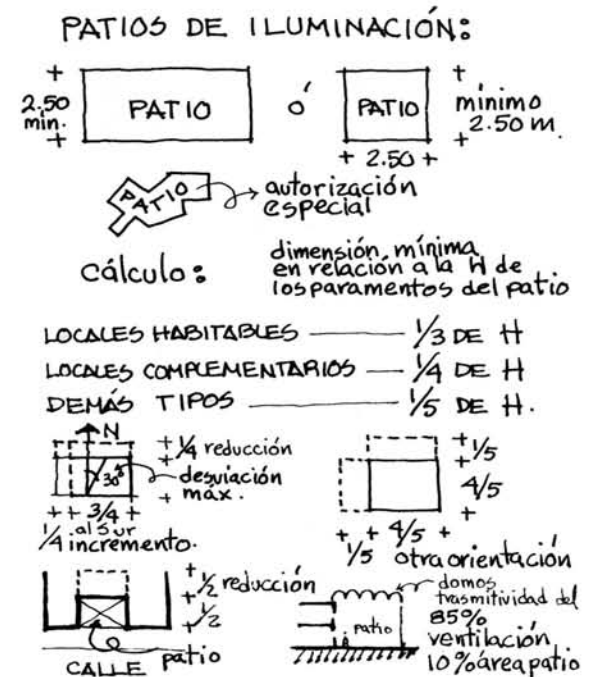 PATIOS DE ILUMINACIÓN:
2.50
min.
PATIO
ó
PATIO
mínimo
2.50 m.
2.50
PATIO
autorización
especial
cálculo:
dimensión, mínima
en relación a la H de
los paramentos del patio
LOCALES HABITABLES — 1/3 DE H
LOCALES COMPLEMENTARIOS — 1/4 DE H
DEMÁS TIPOS — 1/5 DE H.
N
1/4 reducción
30°
desviación
máx.
3/4
1/4 al sur
incremento.
1/5
4/5
4/5
1/5 otra orientación
1/2 reducción
1/2
CALLE
patio
domos
trasmitividad del
85%
patio
ventilación
10% área patio